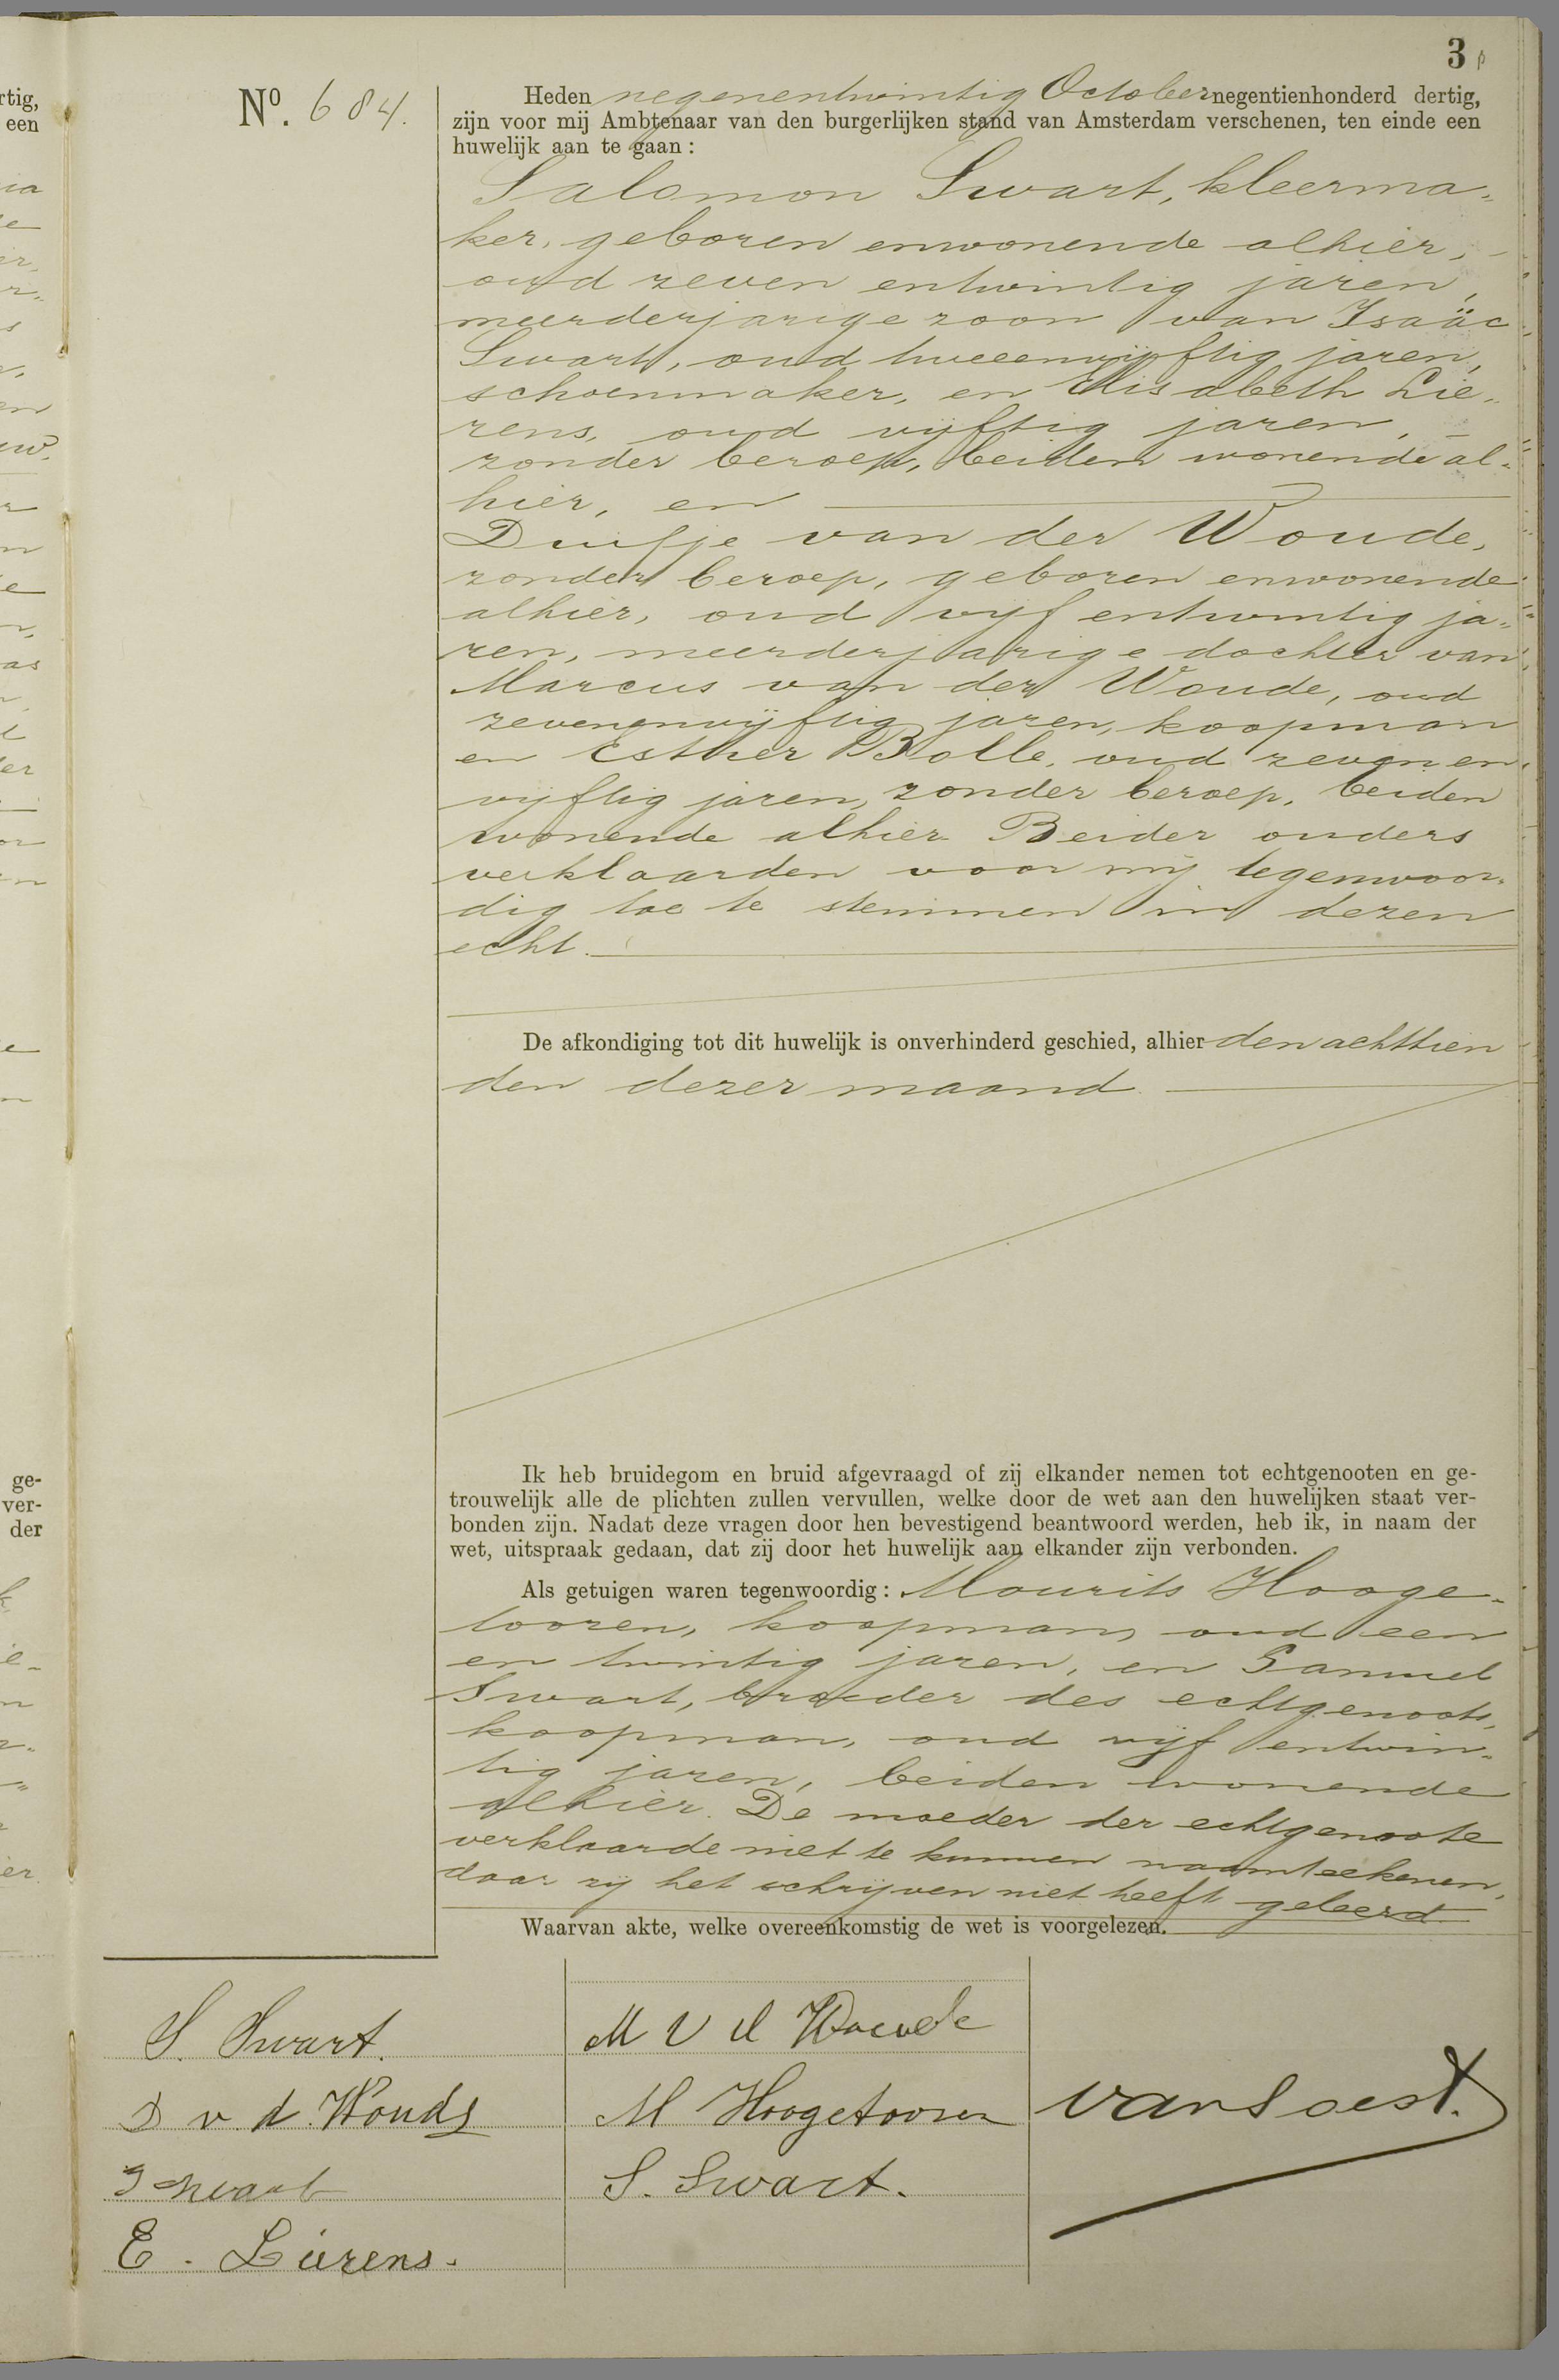 3
Nº. 684.
Heden negenentwintig October negentienhonderd dertig,
zijn voor mij Ambtenaar van den burgerlijken stand van Amsterdam verschenen, ten einde een
huwelijk aan te gaan:
Salomon Swart, kleerma„
ker, geboren enwonende alhier,
oud zeven entwintig jaren,
meerderjarige zoon van Isaäc
Swart, oud tweeenvijftig jaren,
schoenmaker, en Elisabeth Lie„
rens, oud vijftig jaren,
zonder beroep, beiden wonende al„
hier, en
Duifje van der Woude,
zonder beroep, geboren enwonende
alhier, oud vijf entwintig ja„
ren, meerderjarige dochter van
Marcus van der Woude, oud
zevenenvijftig jaren, koopman
en Esther Bolle, oud zevenen„
vijftig jaren, zonder beroep, beiden
wonende alhier. Beider ouders
verklaarden voor mij tegenwoor„
dig toe te stemmen in dezen
echt.
De afkondiging tot dit huwelijk is onverhinderd geschied, alhier den achttien
den dezer maand.
Ik heb bruidegom en bruid afgevraagd of zij elkander nemen tot echtgenooten en ge-
trouwelijk alle de plichten zullen vervullen, welke door de wet aan den huwelijken staat ver-
bonden zijn. Nadat deze vragen door hen bevestigend beantwoord werden, heb ik, in naam der
wet, uitspraak gedaan, dat zij door het huwelijk aan elkander zijn verbonden.
Als getuigen waren tegenwoordig: Mourits Hooge„
tooren, koopman, oud een
en twintig jaren, en Samuel
Swart, broeder des echtgenoots,
koopman, oud vijf entwin„
tig jaren, beiden wonende
alhier. De moeder der echtgenoote
verklaarde niet te kunnen naamteekenen,
daar zij het schrijven niet heeft geleerd.
Waarvan akte, welke overeenkomstig de wet is voorgelezen.
S. Swart.
D v. d. Woude
I Swart
E. Lierens.
M V d Woude
M Hoogetooren
S. Swart.
van Soest.